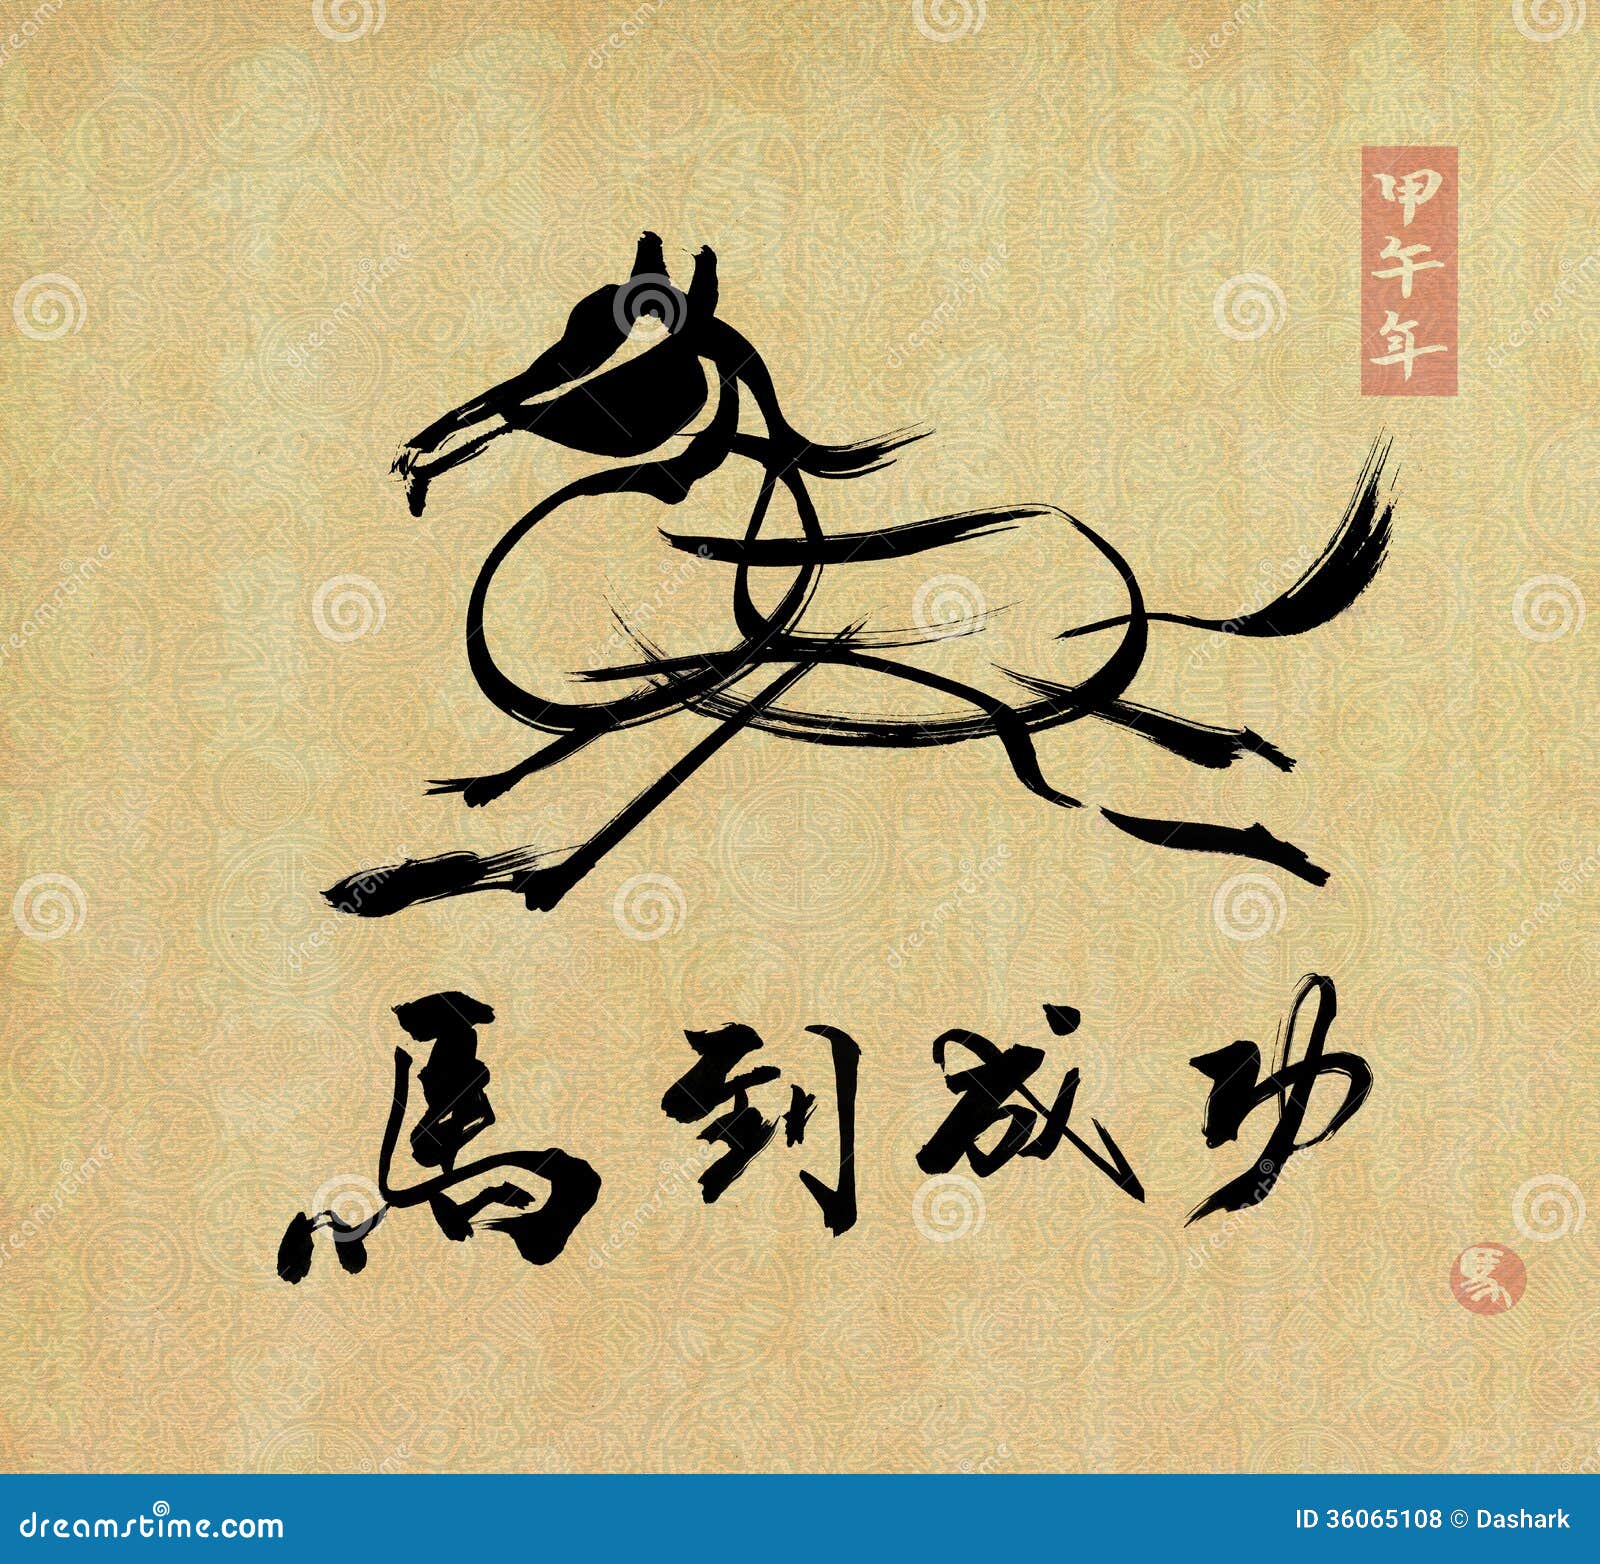 甲午年
馬到成功
馬
dreamstime.com
ID 36065108 © Dashark